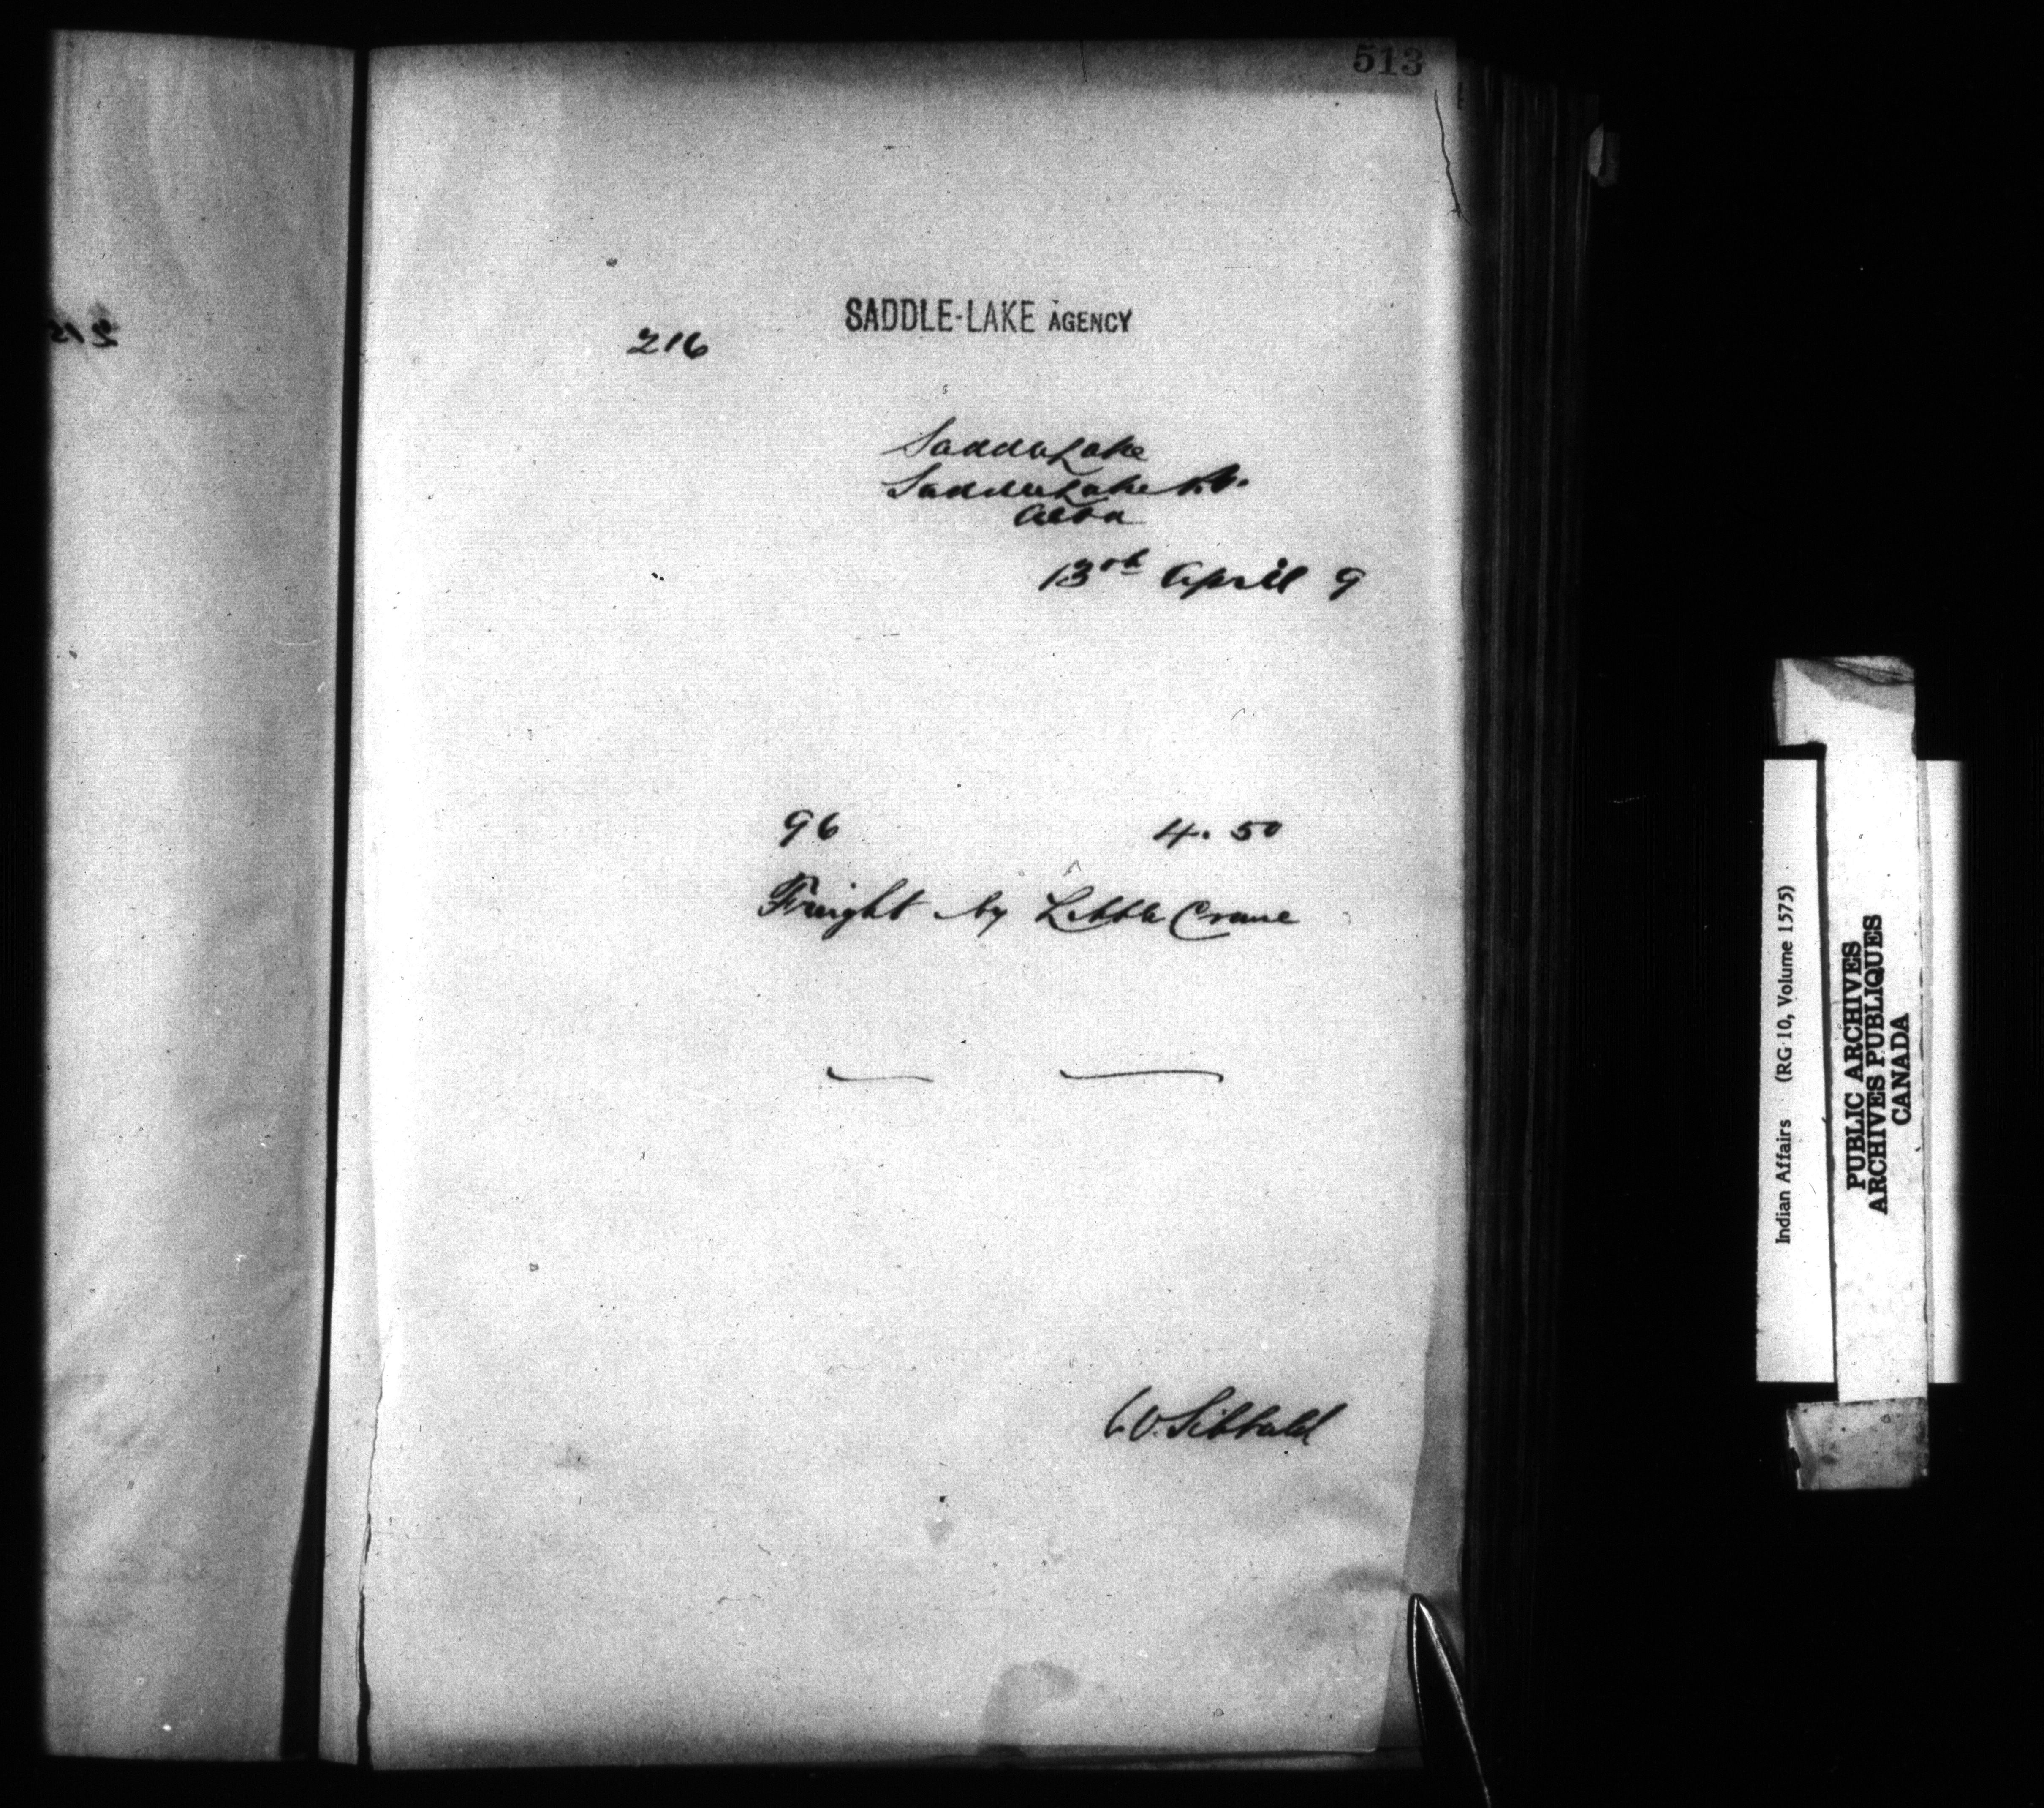 513
SADDLE-LAKE AGENCY
216
215
Saddle Lake
Saddle Lake P.O.
Alta
13th April 9
96 4.50
Freight by Little Crane
W. Sibbald
Indian Affairs (RG 10, Volume 1575)
PUBLIC ARCHIVES
ARCHIVES PUBLIQUES
CANADA